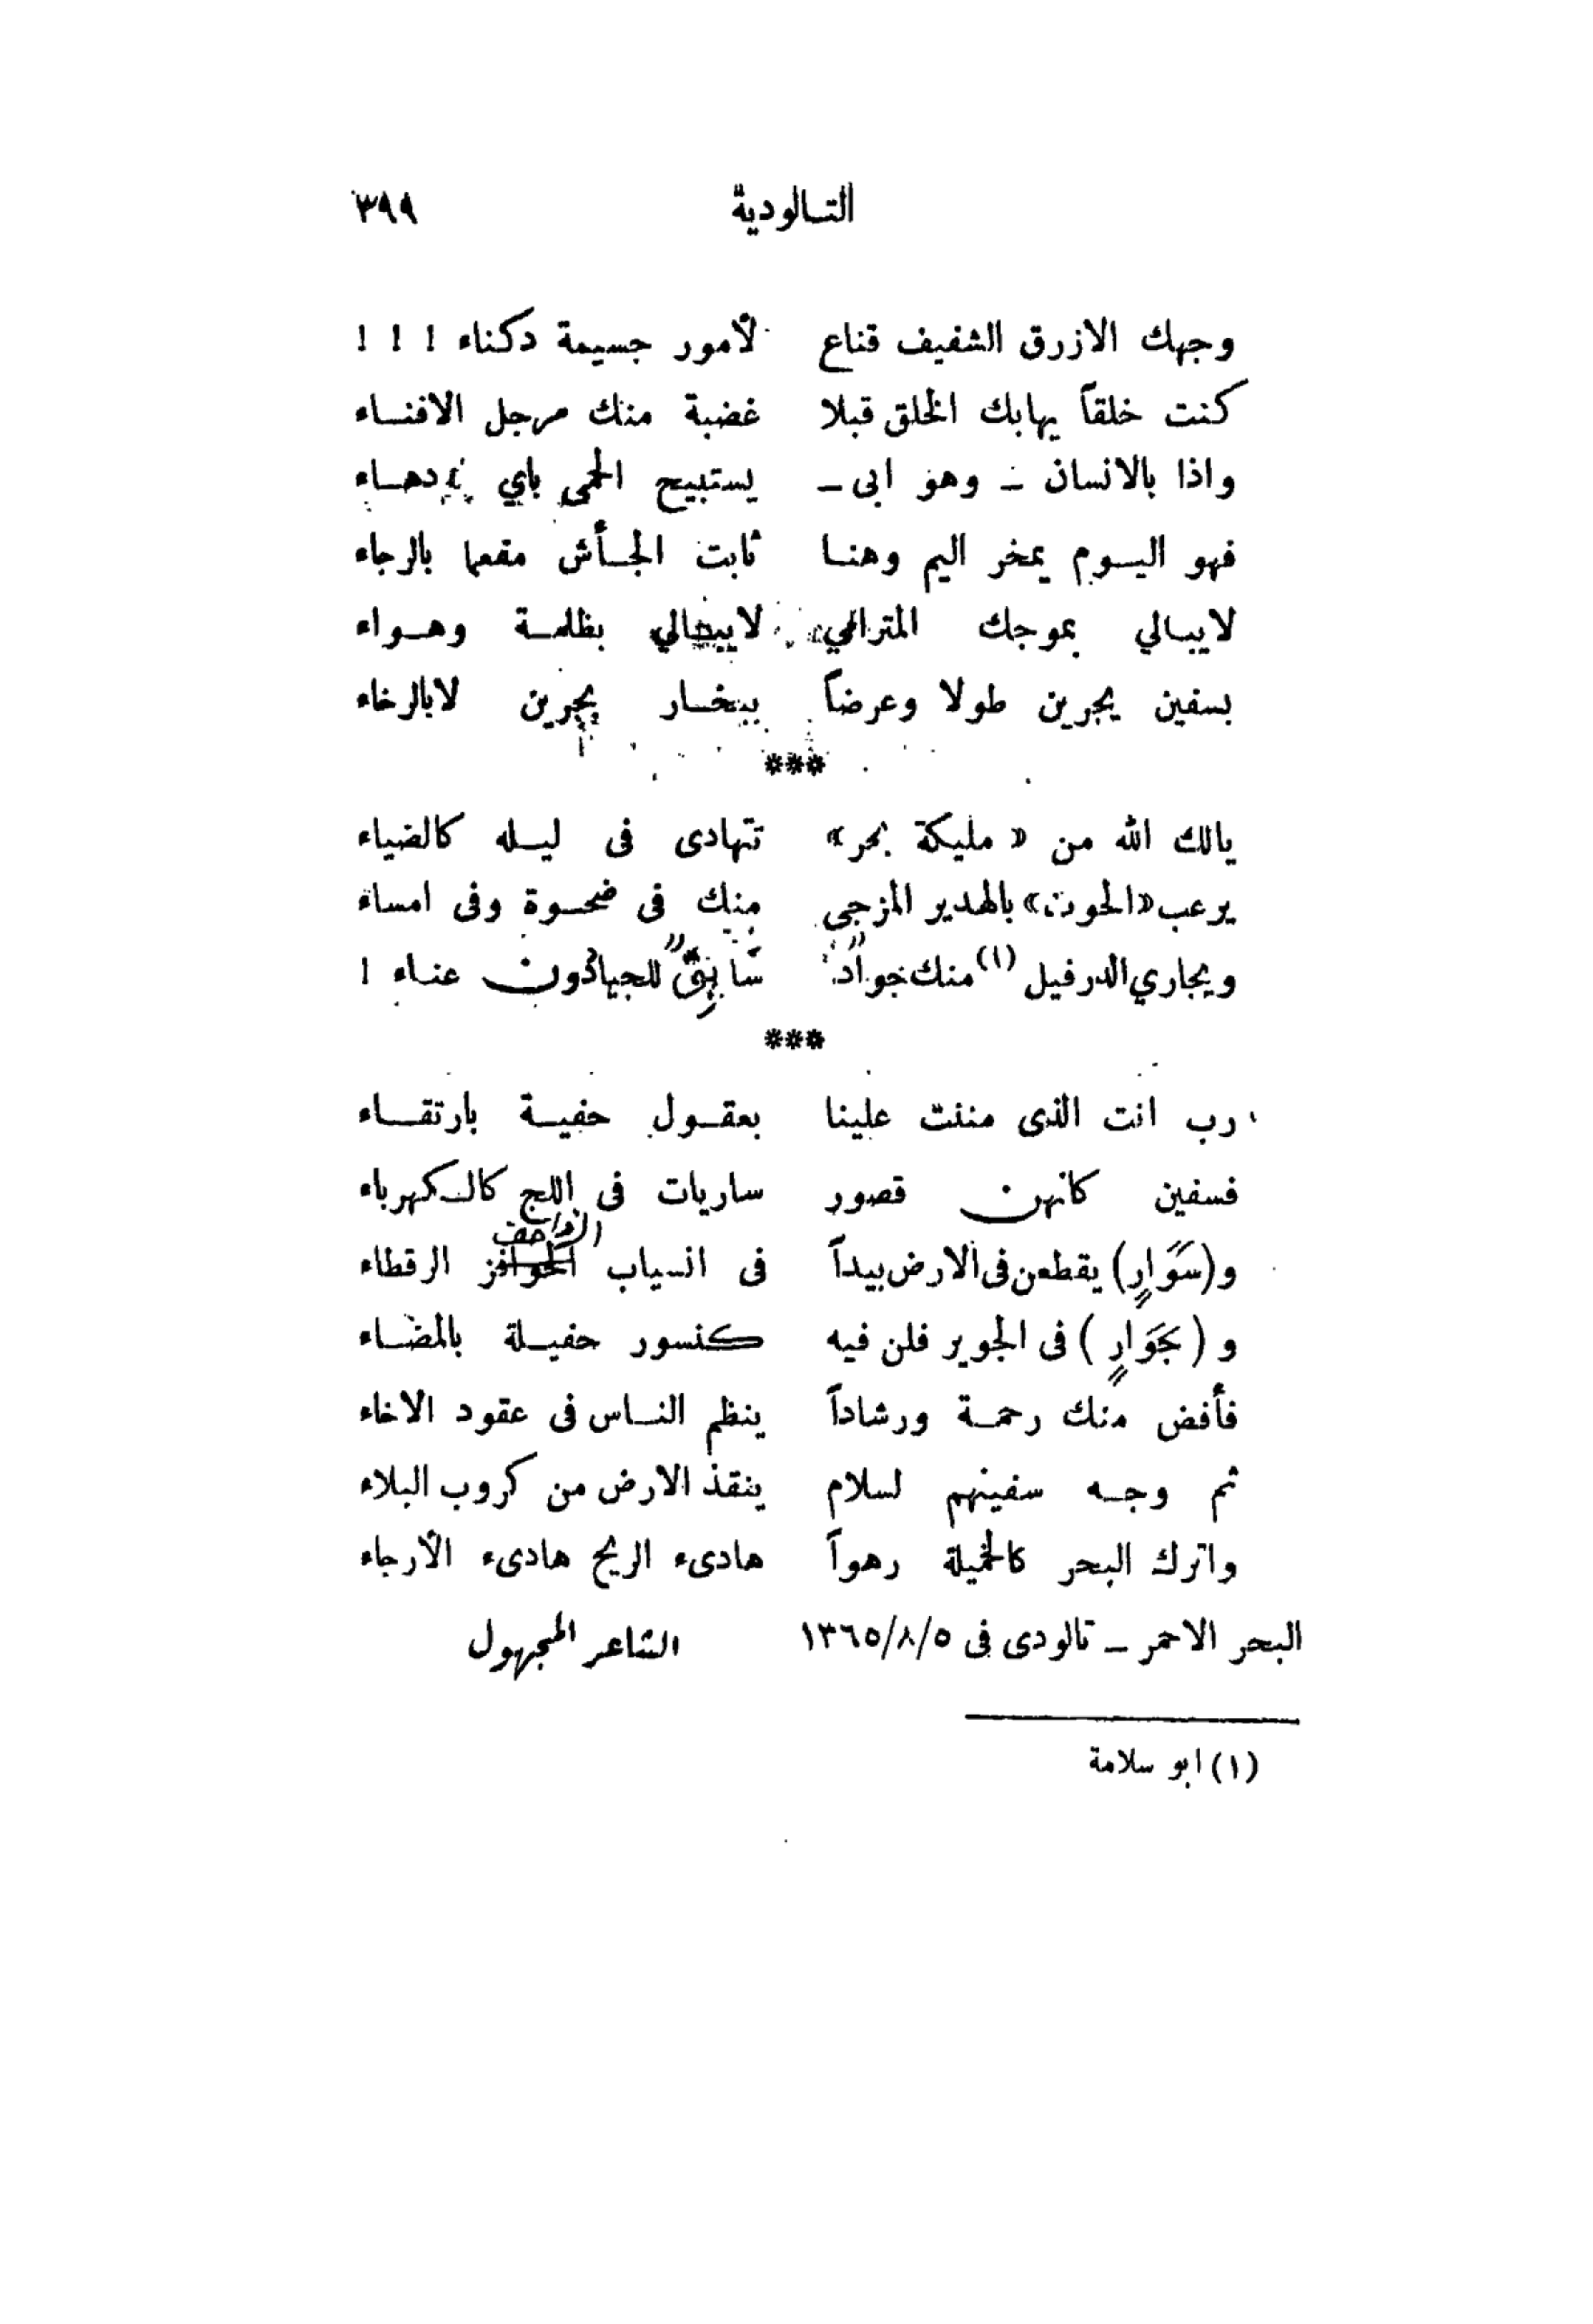 التالودية ٣٩٩
وجهك الازرق الشفيف قناع لأمور جسيمة دكناء ! ! !
كنت خلقاً يهابك الخلق قبلا غضبة منك مرجل الافناء
واذا بالانسان ـ وهو ابى ـ يستبيح الحمى باي دهاء
فهو اليوم يمخر اليم وهنا ثابت الجأش مفعما بالرجاء
لايبالي بموجك المترامي لايبالي بظلمة وهواء
بسفين يجرين طولا وعرضاً ببخار يجرين لابالرخاء
***
يالك الله من « مليكة بحر» تتهادى فى ليله كالضياء
يرعب «الحوت» بالهدير المزجى منك فى ضحوة وفى امساء
ويجاري الدرفيل (١) منك جوادٌ سابقٌ للجياد دون عناء !
***
رب انت الذى مننت علينا بعقول حفية بارتقاء
فسفين كانهن قصور ساريات فى اللج كالكهرباء
الزواحف
و(سَوَارٍ) يقطعن فى الارض بيداً فى انسياب الحوافز الرقطاء
و (بجَوَارٍ) فى الجو ير فلن فيه كنسور حفيلة بالمضاء
فأفض منك رحمة ورشاداً ينظم الناس فى عقود الاخاء
ثم وجه سفينهم لسلام ينقذ الارض من كروب البلاء
واترك البحر كالخميلة رهواً هادىء الريح هادىء الأرجاء
البحر الاحمر ـ تالودى فى ١٣٦٥/٨/٥ الشاعر المجهول
(١) ابو سلامة